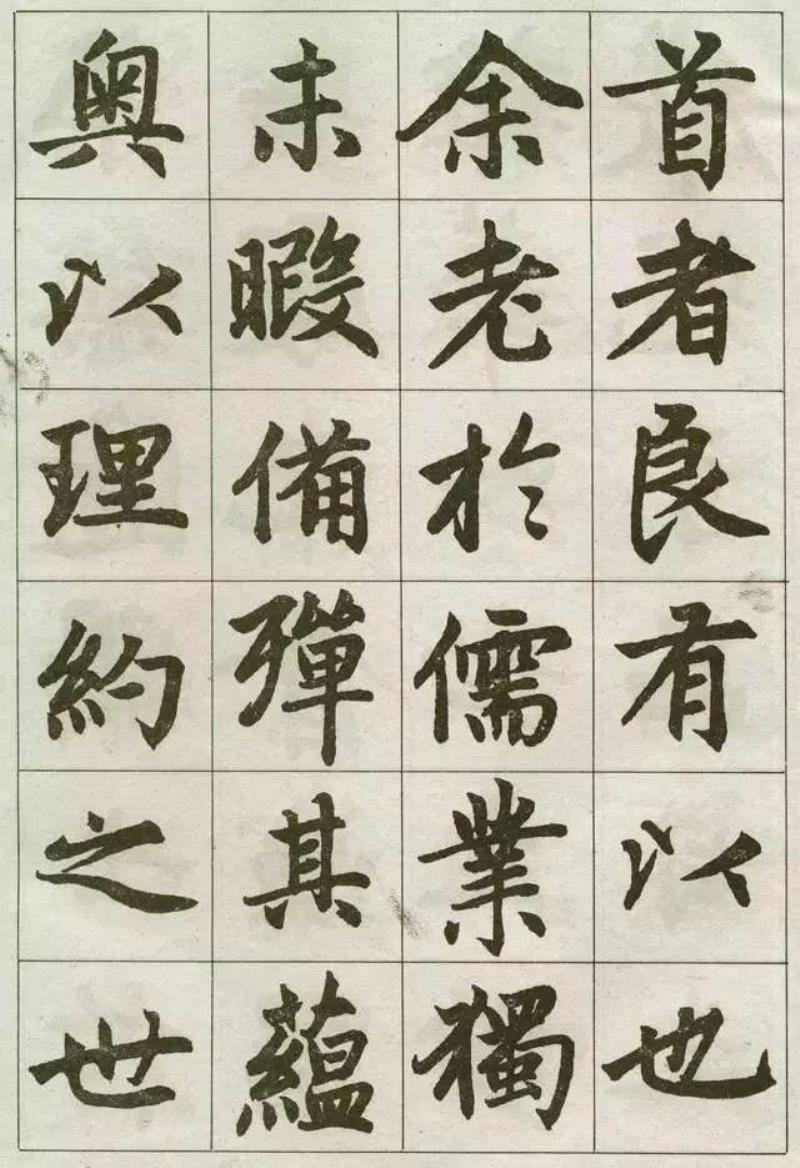 首者良有以也
余老於儒業獨
未暇備殫其蘊
奧以理約之世